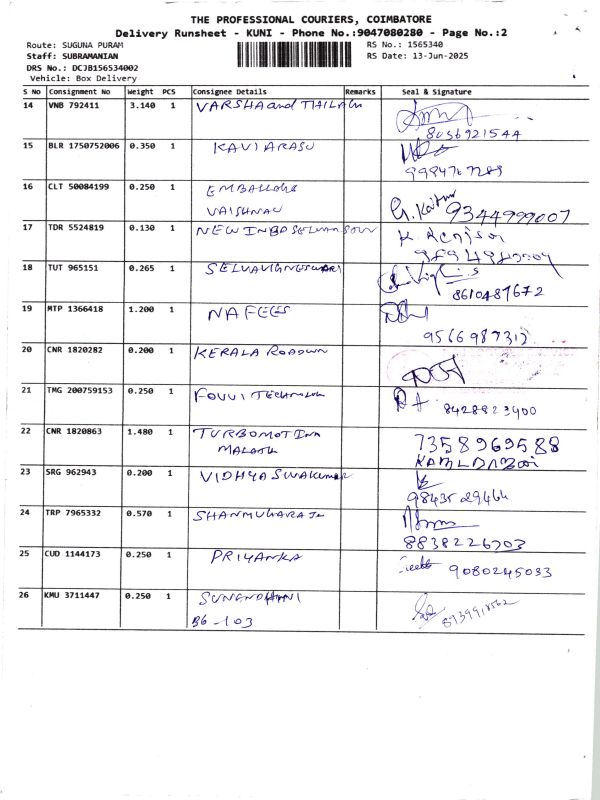 THE PROFESSIONAL COURIERS, COIMBATORE
Delivery Runsheet - KUNI - Phone No.:9047080280 - Page No.:2
Route: SUGUNA PURAM RS No.: 1565340
Staff: SUBRAMANIAN RS Date: 13-Jun-2025
DRS No.: DCJB156534002
Vehicle: Box Delivery
S No Consignment No Weight PCS Consignee Details Remarks Seal & Signature
14 VNB 792411 3.140 1 VARSHA and THILAGA
8056921544
15 BLR 1750752006 0.350 1 KAVIARASU
16 CLT 50084199 0.250 1 EMBALLAGE
VAISHNAV G. 9344999007
17 TDR 5524819 0.130 1 NEW INBA SELVAM SOW K
18 TUT 965151 0.265 1 SELVAVIGNESWARI
8610487672
19 MTP 1366418 1.200 1 NAFEES
9566987312
20 CNR 1820282 0.200 1 KERALA ROADWN
21 TMG 200759153 0.250 1 FOVVI TECHNOLOG
8428823400
22 CNR 1820863 1.480 1 TURBOMOT INN 7358969588
MALATHI
23 SRG 962943 0.200 1 VIDHYA SIVAKUMAR
9843529464
24 TRP 7965332 0.570 1 SHANMUGARAJ
8838226703
25 CUD 1144173 0.250 1 PRIYANKA
9080245033
26 KMU 3711447 0.250 1
B6 - 103